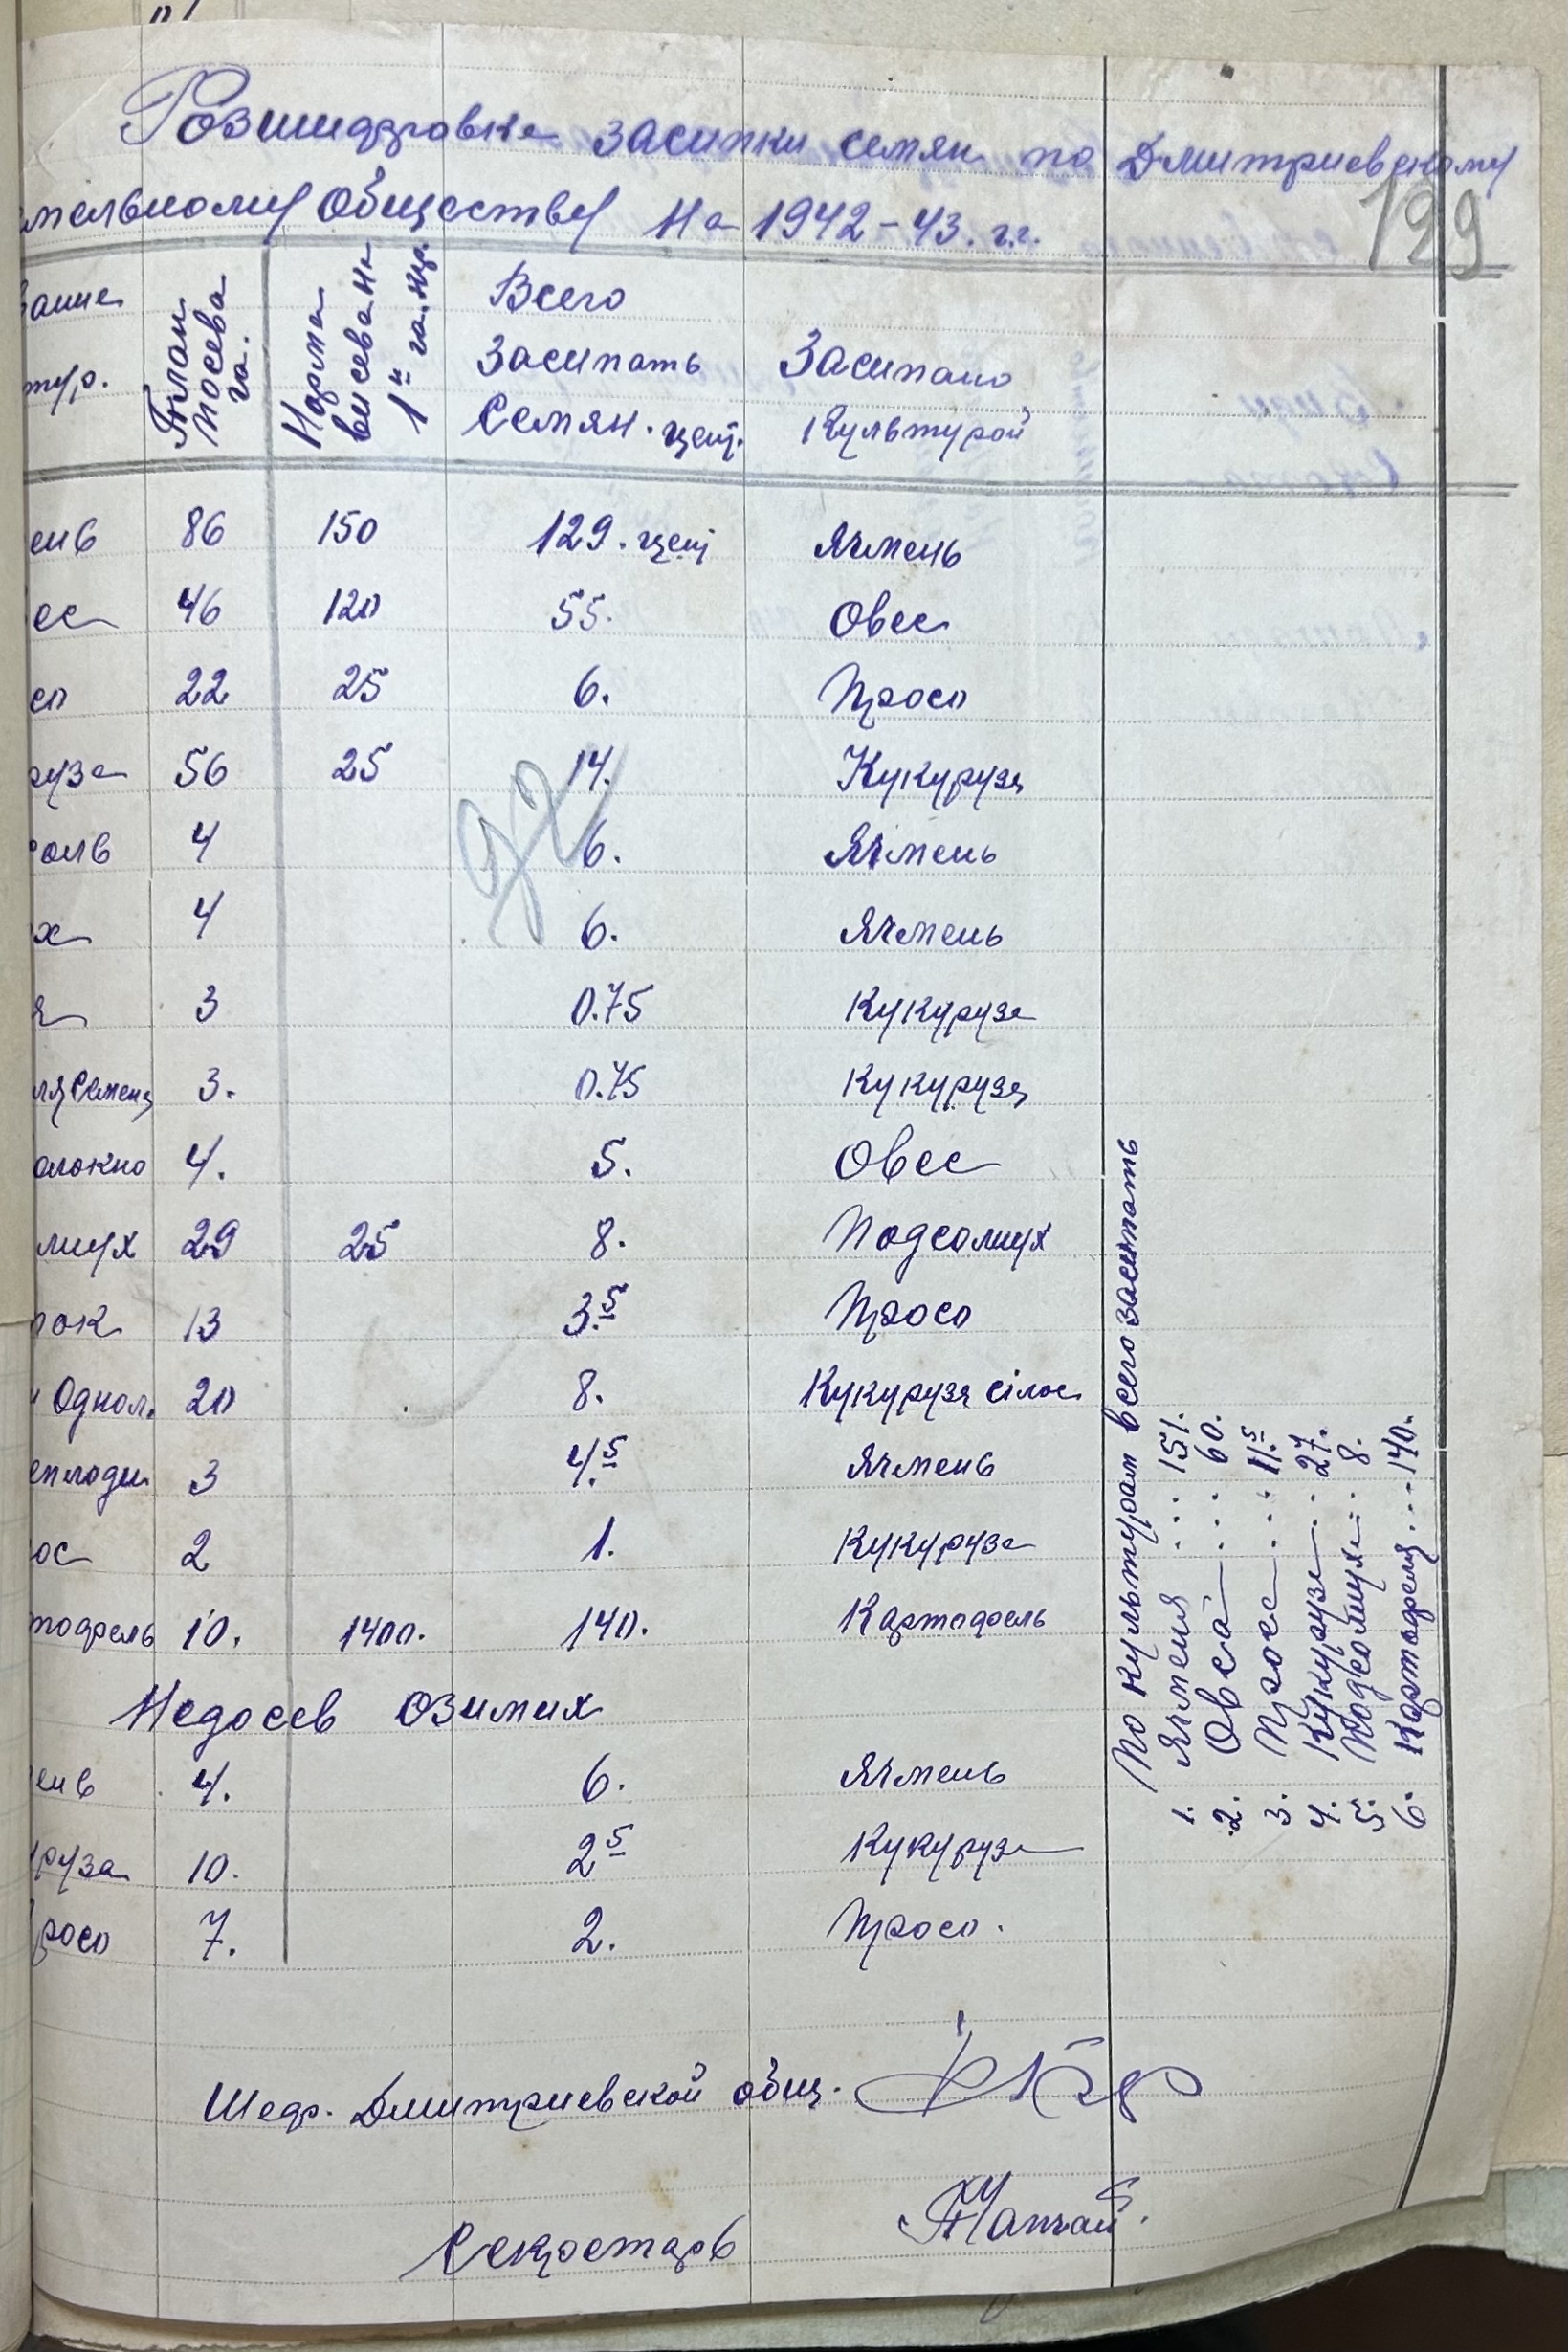 Розшидровка засипки семян по Дмитриевскому
мельному Обществу На 1942-43. г.г.
129
вание тур.
План посева га.
Норма висева на 1н га. кгр.
Всего Засипать Семян. цент.
Засипано Культурой
ень 86 150 129. цент Ячмень
ес 46 120 55. Овес
со 22 25 6. Просо
руза 56 25 14. Кукуруза
92
соль 4 6. Ячмень
х 4 6. Ячмень
я 3 0.75 Кукуруза
ля Семена 3. 0.75 Кукуруза
олокно 4. 5. Овес
лнух 29 25 8. Подсолнух
рок 13 3.5 Просо
и Однол. 20 8. Кукуруза сілос
енлоди 3 4.5 Ячмень
ос 2 1. Кукуруза
тофель 10. 1400. 140. Картофель
Недосев озимих
ень 4. 6. Ячмень
уруза 10. 2 5 Кукуруза
росо 7. 2. Просо.
По культурам всего засипать
1. Ячменя .... 151.
2. Овса .... 60.
3. Просо .... 11.5
4. Кукурузи .. 27.
5. Подсолнуха .. 8.
6. Картофеля ... 140.
Шеф. Дмитриевской общ.
Секретарь